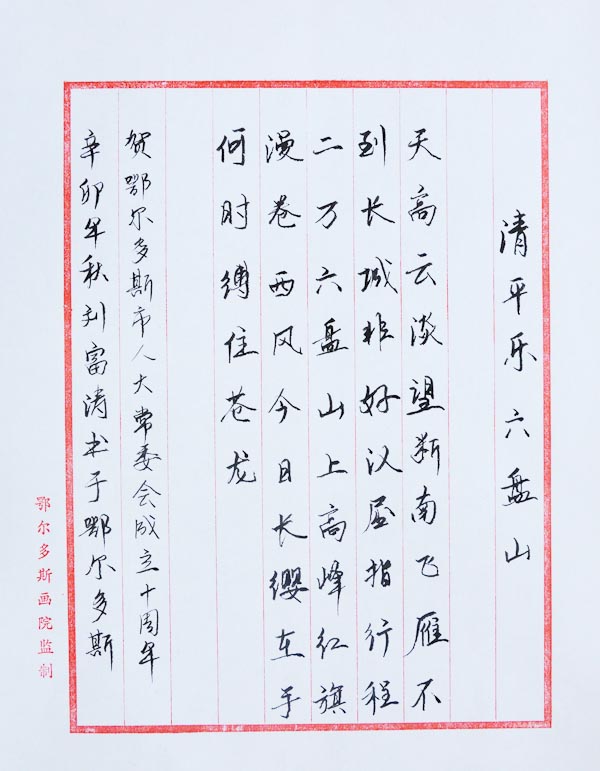 清平乐六盘山
天高云淡望断南飞雁不
到长城非好汉屈指行程
二万六盘山上高峰红旗
漫卷西风今日长缨在手
何时缚住苍龙
贺鄂尔多斯市人大常委会成立十周年
辛卯年秋刘富涛书于鄂尔多斯
鄂尔多斯画院监制